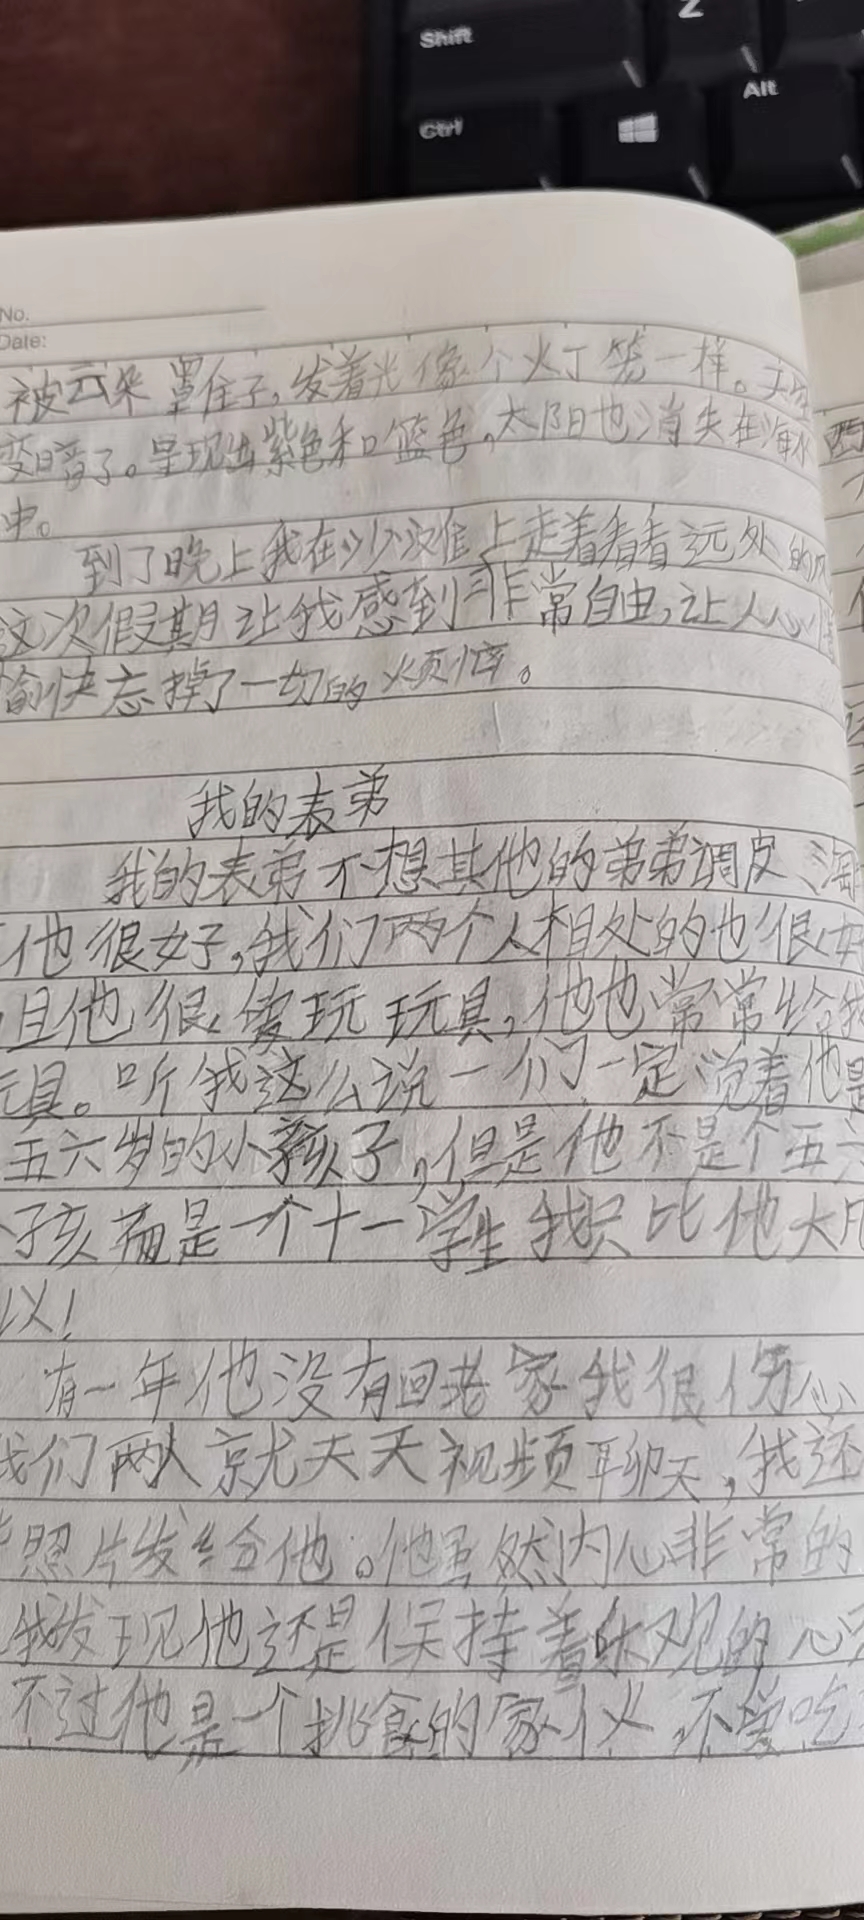 Shift
Z
Ctrl
Alt
No.
Date:
被云朵罩住了,发着光像个火丁笼一样。
变暗了。呈现出紫色和篮色,太阳也消失在海水
中。
到了晚上我在沙滩上走着看看远处的
这次假期让我感到非常自由,让人心情
愉快忘掉了一切的烦恼。
我的表弟
我的表弟不想其他的弟弟调皮淘
他很好,我们两个人相处的也很好
且他很爱玩玩具,他也常常给我
玩具。听我这么说一们一定觉着他是
五六岁的小孩子,但是他不是个五六
子孩而是一个十一学生我只比他大几
以!
有一年他没有回老家我很伤心
我们两人就天天视频聊天,我还
照片发给他。他虽然内心非常的
我发现他还是保持着乐观的心
不过他是一个挑食的家伙,不爱吃